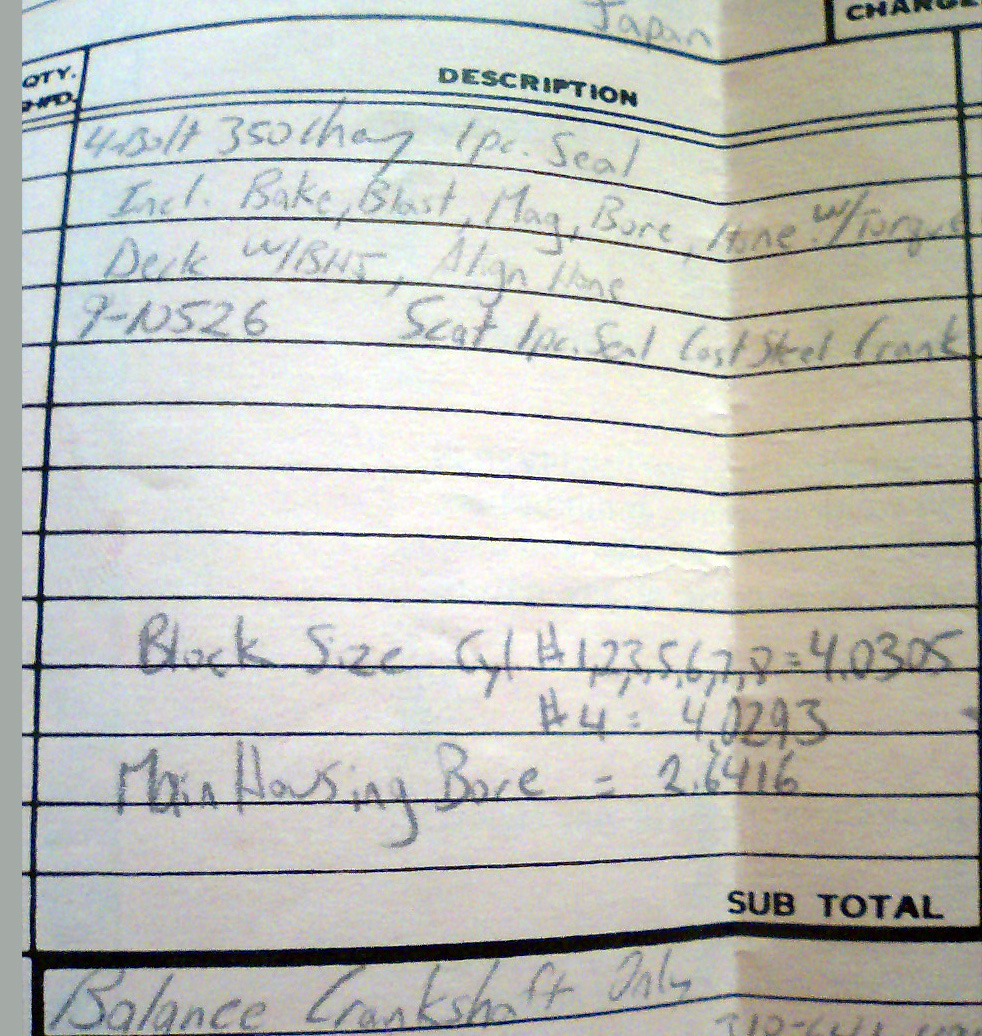 Japan
QTY.
SHPD.
DESCRIPTION
4-Bolt 350 Chevy 1pc. Seal
Incl. Bake, Blast, Mag, Bore, Hone w/Torque
Deck w/BHJ, Align Hone
9-10526 Scat 1pc. Seal Cast Steel Crank
Block Size Cyl #1,2,3,5,6,7,8 = 4.0305
#4 = 4.0293
Main Housing Bore = 2.6416
SUB TOTAL
Balance Crankshaft Only